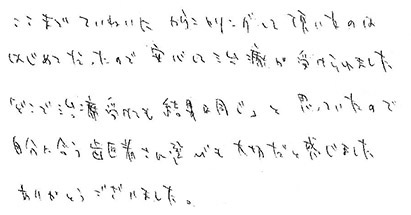 ここまでていねいに カウンセリングして頂いたのは
はじめてだったので 安心して治療が受けられました
「どこで治療受けても結果は同じ」と 思っていたので
自分に合う歯医者さん選びも大切だと感じました
ありがとうございました。